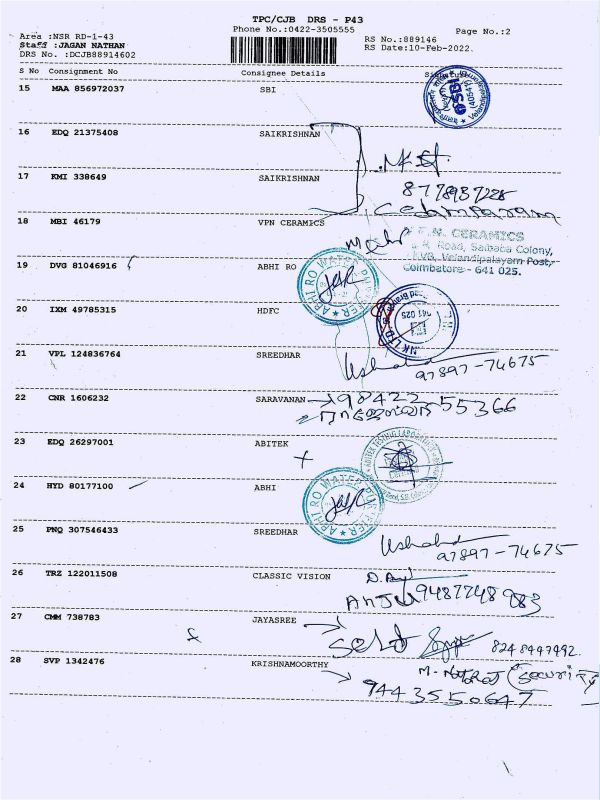 TPC/CJB DRS - P43
Phone No.:0422-3505555
Page No.:2
Area :NSR RD-1-43
RS No.:889146
Staff :JAGAN NATHAN
RS Date:10-Feb-2022.
DRS No. :DCJB88914602
S No Consignment No Consignee Details Signature
15 MAA 856972037 SBI
16 EDQ 21375408 SAIKRISHNAN
17 KMI 338649 SAIKRISHNAN
18 MBI 46179 VPN CERAMICS
CERAMICS
Road, Saibaba Colony,
KVB, Velandipalayam Post,
Coimbatore - 641 025.
19 DVG 81046916 ABHI RO
ABHI RO WATER PURIFIER
20 IXM 49785315 HDFC
21 VPL 124836764 SREEDHAR
97897-74675
22 CNR 1606232 SARAVANAN
98422 55366
23 EDQ 26297001 ABITEK
24 HYD 80177100 ABHI
ABHI RO WATER PURIFIER
25 PNQ 307546433 SREEDHAR
97897-74675
26 TRZ 122011508 CLASSIC VISION
Anju 9487748983
27 CMM 738783 JAYASREE
Self 8248447492.
28 SVP 1342476 KRISHNAMOORTHY
(Security)
9443550647